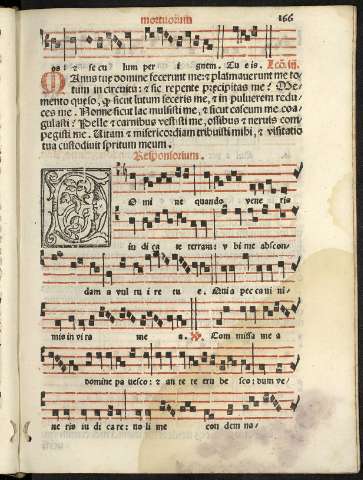 mortuorum 166
os: & se cu lum per i gnem. Tu eis. Lcõ.iij.
MAnus tuę domine fecerunt me: & plasmauerunt me to
tum in circuitu: & sic repente pręcipitas me? Me
mento quęso, ꝙ sicut lutum feceris me, & in puluerem redu
ces me. Nonne sicut lac mulsisti me, & sicut caseum me coa
gulasti? Pelle & carnibus vestisti me, ossibus & neruis com
pegisti me. Uitam & misericordiam tribuisti mihi, & visitatio
tua custodiuit spiritum meum.
Responsorium.
DO mi ne quando vene ris
iu di ca re terram: v bi me abscon
dam a vul tu i re tu e. Quia pec ca ui ni
mis in vi ta me a. ℣. Com missa me a
domine pa uesco: & an te te eru be sco: dum ve
ne ris iu di ca re: no li me con dem na